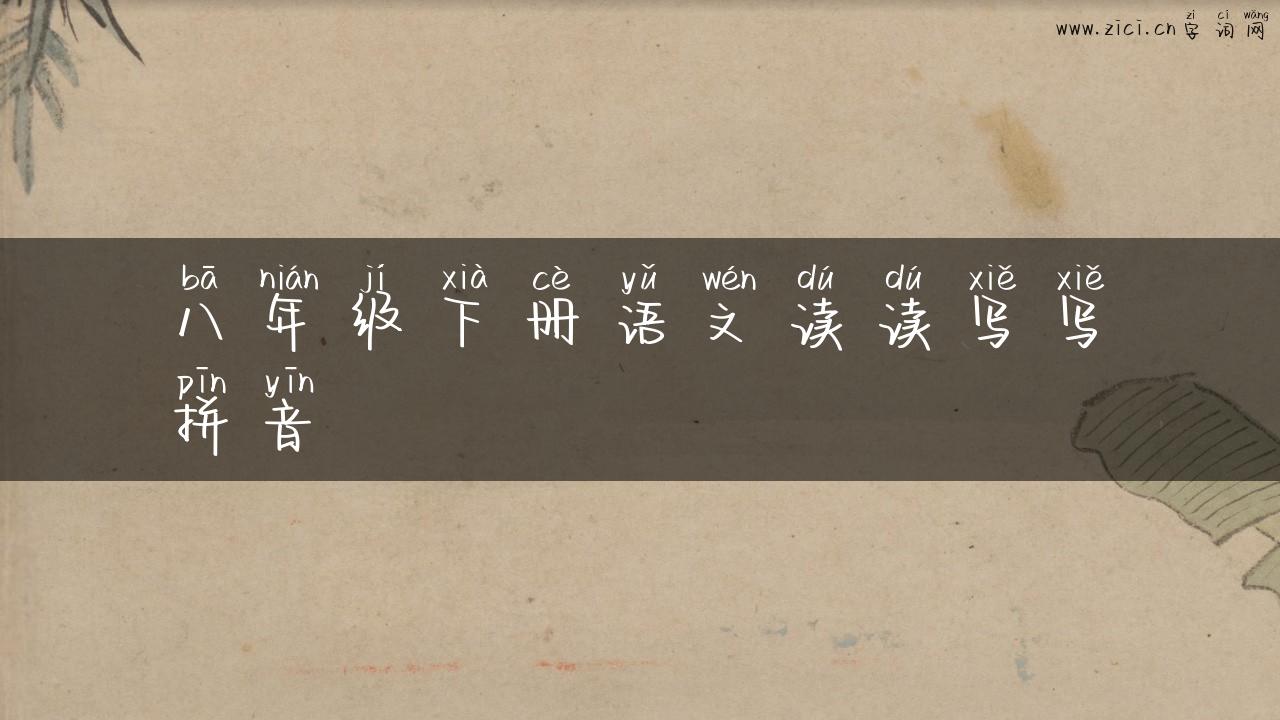 zì cí wǎng
www.zici.cn 字词网
bā nián jí xià cè yǔ wén dú dú xiě xiě
八年级下册语文读读写写
pīn yīn
拼音